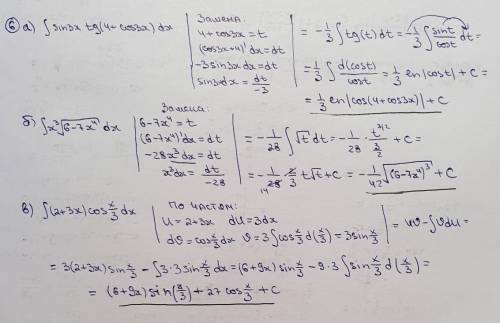 ⑥ а) ∫ sin3x tg(4+cos3x) dx | Замена: 4+cos3x = t (cos3x+4)'dx = dt -3sin3x dx = dt sin3x dx = dt/-3 | = -1/3 ∫ tg(t) dt = -1/3 ∫ sint/cost dt =
= 1/3 ∫ d(cost)/cost = 1/3 ln|cost| + C =
= 1/3 ln|cos(4+cos3x)| + C
б) ∫ x³√(6-7x⁴) dx | Замена: 6-7x⁴ = t (6-7x⁴)'dx = dt -28x³dx = dt x³dx = dt/-28 | = -1/28 ∫ √t dt = -1/28 · t^(3/2)/(3/2) + C =
= -1/28 · 2/3 t√t + C = -1/42 √(6-7x⁴)³ + C
в) ∫ (2+3x) cos x/3 dx | по частям: U = 2+3x dU = 3dx dϑ = cos x/3 dx ϑ = 3∫ cos x/3 d(x/3) = 3sin x/3 | = Uϑ - ∫ϑdU =
= 3(2+3x) sin x/3 - ∫ 3·3 sin x/3 dx = (6+9x) sin x/3 - 9·3 ∫ sin x/3 d(x/3) =
= (6+9x) sin(x/3) + 27 cos x/3 + C